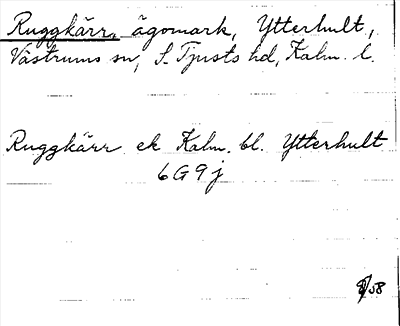 Ruggkärr, ägomark, Ytterhult,
Västrums sn, S. Tjusts hd, Kalm. l.
Ruggkärr ek Kalm. bl. Ytterhult
6G9j